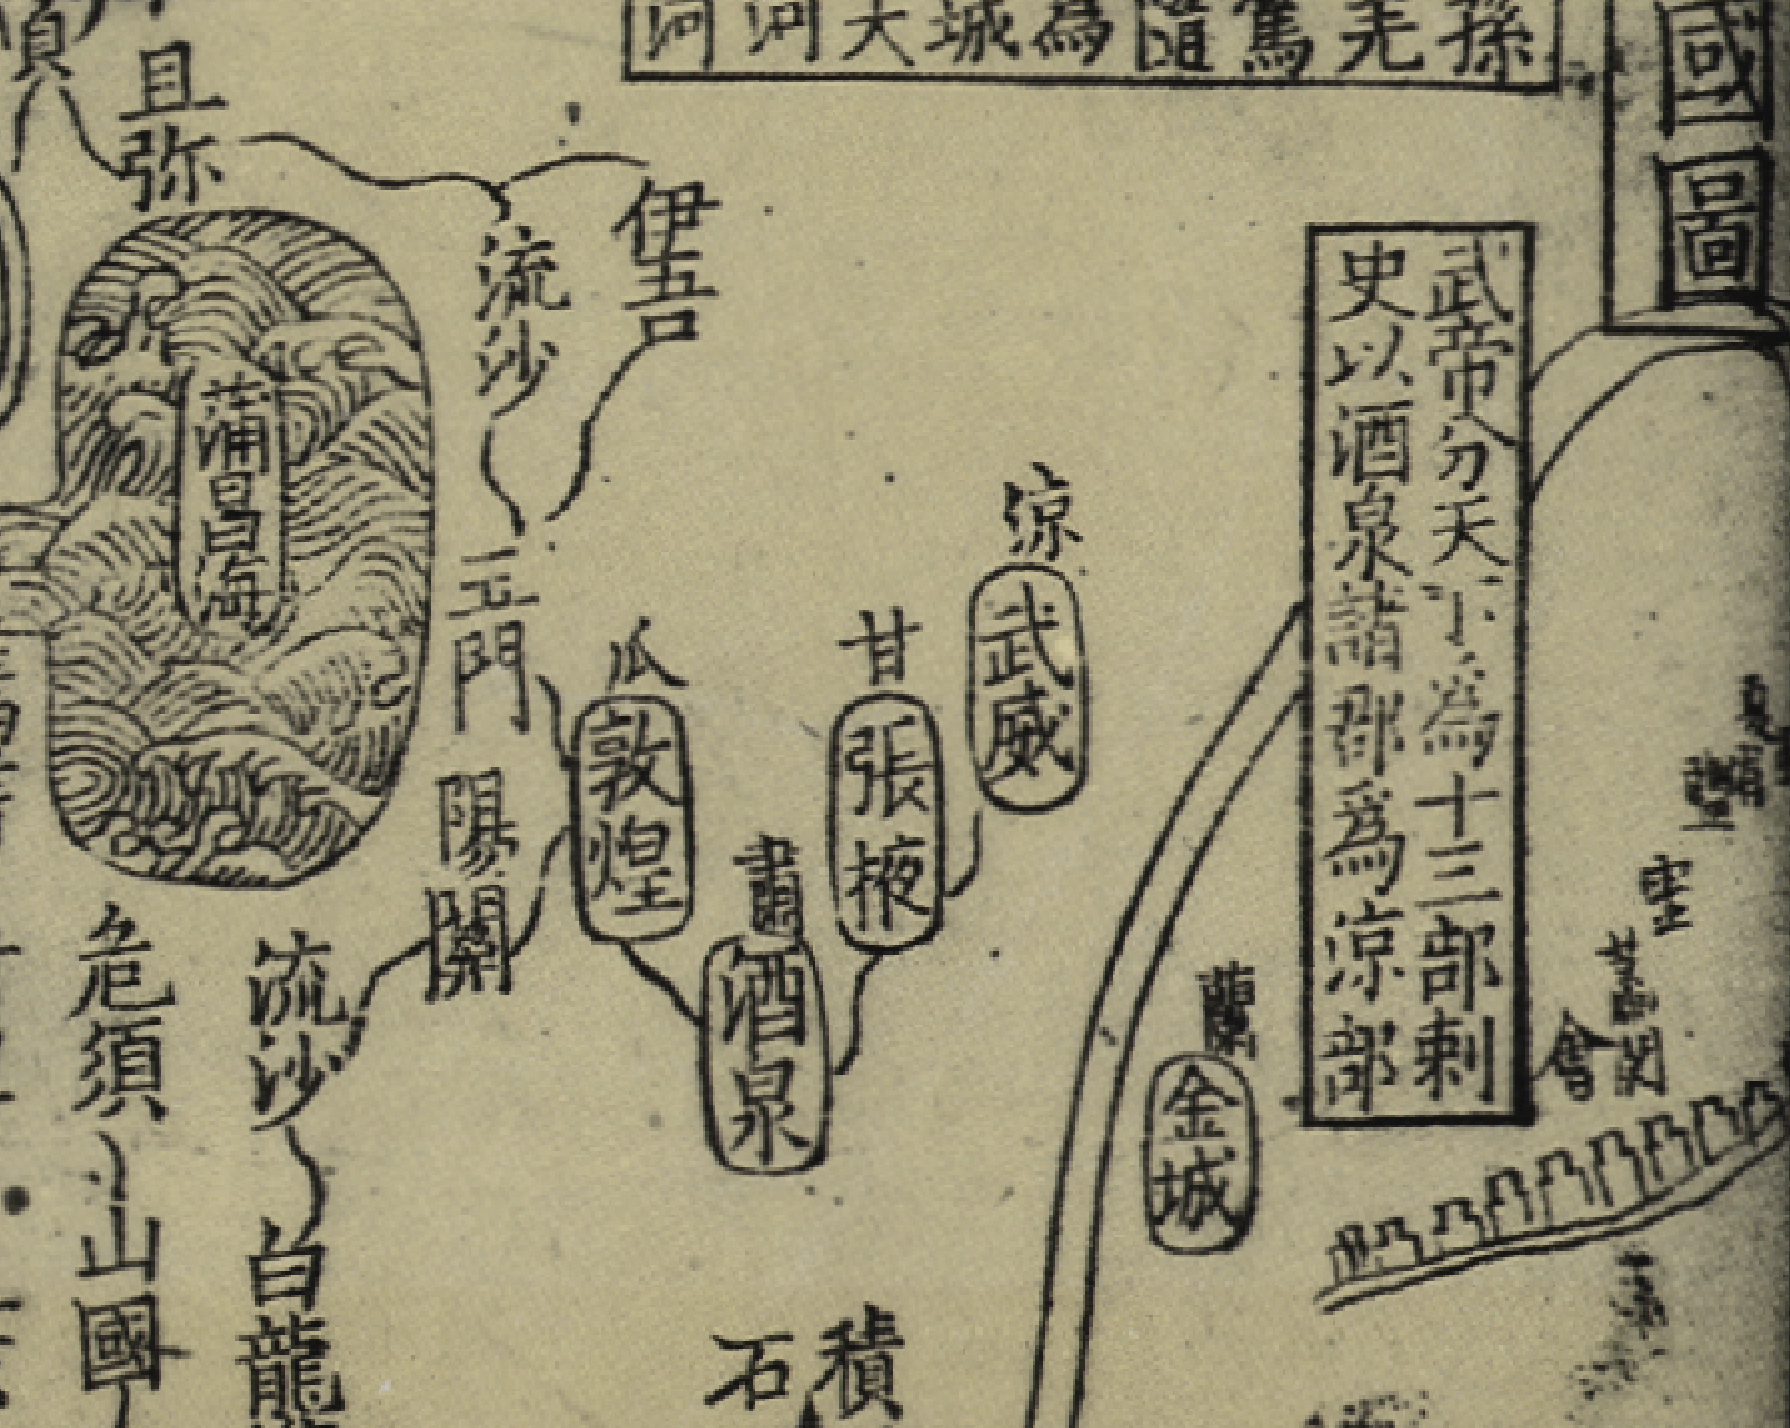 國圖
孫
羌
為
城
大
河
河
武帝分天下為十三部刺
史以酒泉諸郡爲涼部
會
蘭
金城
涼
武威
甘
張掖
肅
酒泉
瓜
敦煌
積
石
伊吾
流沙
玉門
陽關
且弥
蒲昌海
流沙
白龍
危須
山國